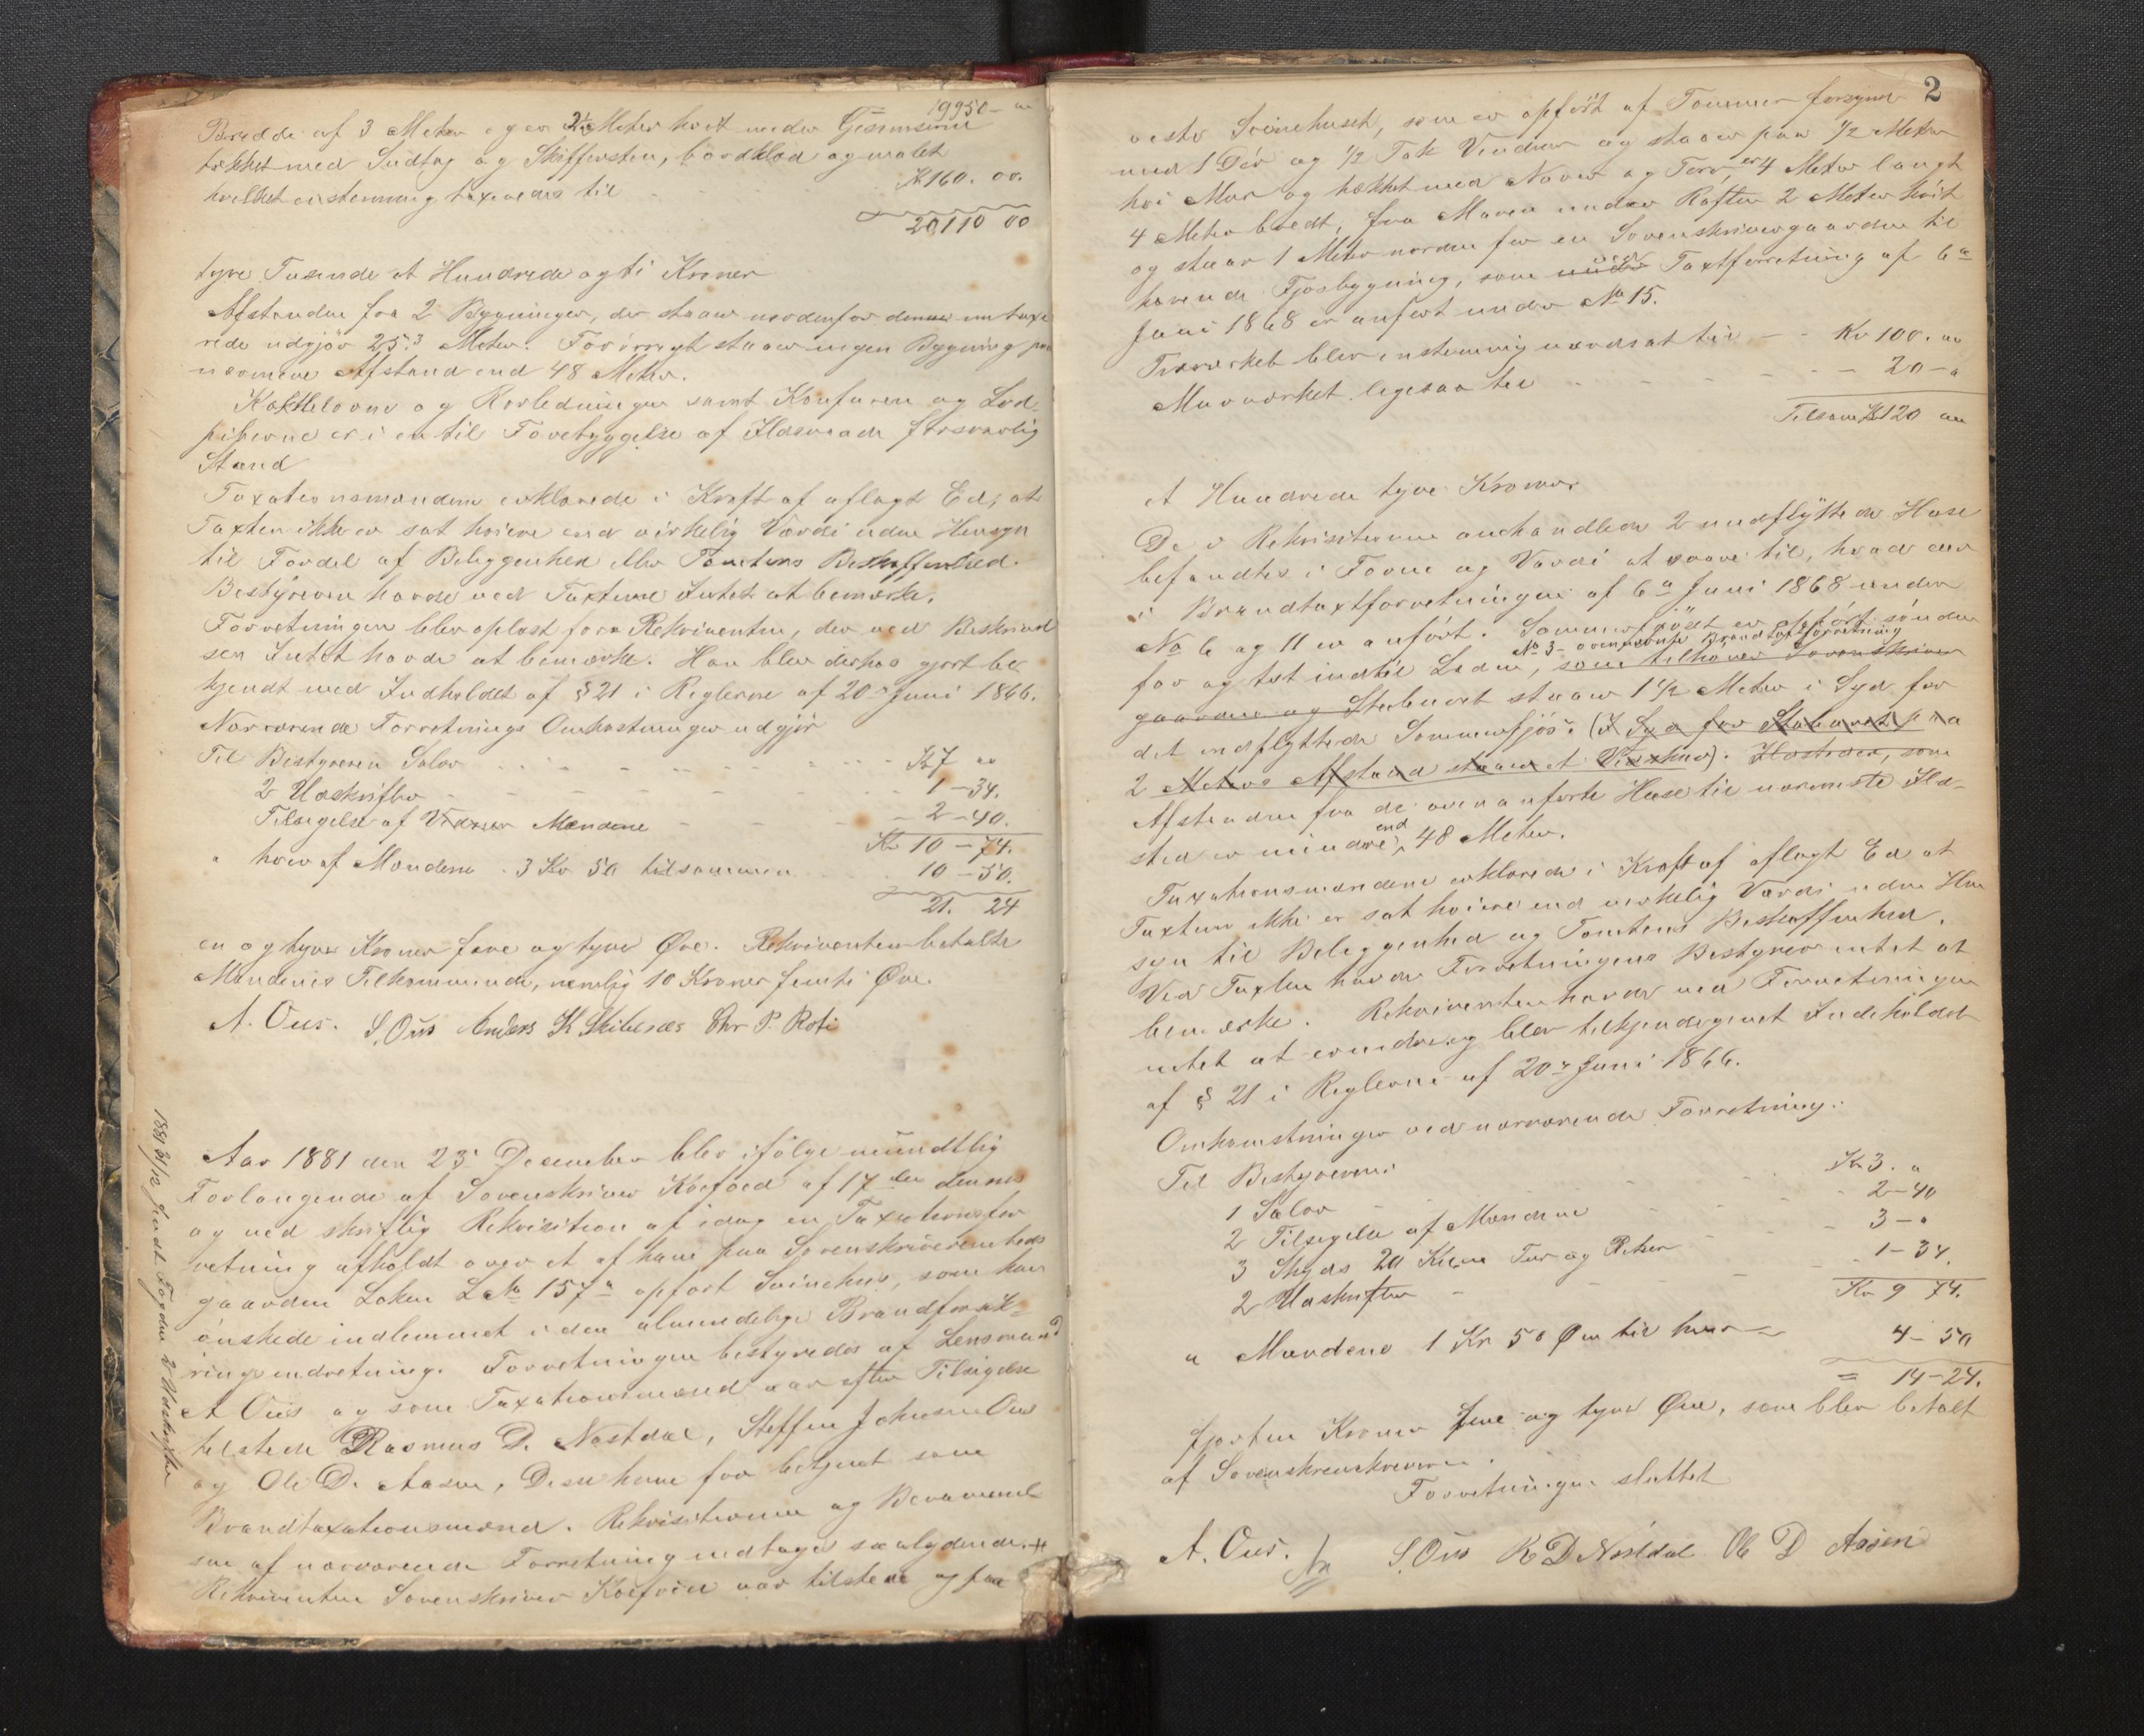 19950 –
Bredde af 3 Meter og er 2½ Meter høit under Gesimserne
tækket med Sudtag og Skiffersten, bordklæd og malet
hvilket enstemmig taxeredes til Kr 160. 00.
20110 00
tyve Tusende et Hundrede og ti Kroner
Afstanden fra 2 Bygninger, der staar nordenfor denne nu taxe
rede udgjør 25.3 Meter. Forøvrigt staar ingen Bygning paa
nærmere Afstand end 48 Meter.
Kakkelovne og Rørledninger samt Komfuren og Lod-
piberne er i en til Forebyggelse af Ildsvaade forsvarlig
Stand
Taxationsmændene erklærede i Kraft af aflagt Ed, at
Taxten ikke er sat høiere end virkelig Værdi uden Hensyn
til Fordel af Beliggenhed eller Tomtens Beskaffenhed.
Bestyreren havde ved Taxterne Intet at bemærke.
Forretningen blev oplæst for Rekvirenten, der ved Beskrivel
sen Intet havde at bemærke. Han blev derhos gjort be
kjendt med Indholdet af § 21 i Reglerne af 20de Juni 1866.
Nærværende Forretnings Omkostninger udgjør
Til Bestyreren Salær Kr 7 "
2 Udskrifter 1 – 34.
Tilsigelse af Mændene 2 – 40.
Kr 10 – 74.
" hver af Mændene 3 Kr 50 tilsammen 10 – 50.
21. 24
en og tyve Kroner fire og tyve Øre. Rekvirenten betalte
Mændenes Tilkommende, nemlig 10 Kroner femti Øre.
A. Ous. S. Ous Anders K Skibenes Chr P. Roti
Aar 1881 den 23 December blev ifølge mundtlig
Forlangende af Sorenskriver Koefoed af 17de dennes
og ved skriftlig Rekvisition af idag en Taxationsfor
retning afholdt over et af ham paa Sorenskriverembeds
gaarden Løken L No 157a opført Svinehus, som han
ønskede indlemmet i den almindelige Brandforsik-
ringsindretning. Forretningen bestyredes af Lensmand
A Ous og som Taxationsmænd var efter Tilsigelse
tilstede Rasmus D. Nøstdal, Steffen Johnsen Ous
og Ole D. Aasen, Disse ham for bekjendt som
Brandtaxationsmænd. Rekvisitionen og Berammel
sen af nærværende Forretning indtages saalydende: #
Rekvirenten Sorenskriver Koefoed var tilstede og paa
1881 31/12 sendt Fogden 2 Udskrifter
2
viste Svinehuset, som er opført af Tømmer forsynet
med 1 Dør og 1/2 Fak Vinduer og staar paa 1/2 Meter
høi Mur og tækket med Næver og Torv, er 4 Meter langt
4 Meter bredt, fra Muren under Raften 2 Meter høit
og staar 1 Meter norden for en Sorenskrivergaarden til
hørende Fjøsbygning, som under Taxtforretning af 6te
Juni 1868 er anført under No 15.
Træværket blev enstemmig værdsat til Kr 100. "
Murværket ligesaa til 20 – "
Tilsam Kr 120 "
Et Hundrede tyve Kroner
De i Rekvisitionen omhandlede 2 indflyttede Huse
befandtes i Forme og Værdi at svare til, hvad der
i Brandtaxtforretningen af 6te Juni 1868 under
No 6 og 11 er anført. Sommerfjøset er opført sønden
No 3 ovennævnte Brandtaxtforretning
for og tæt indtil Laden, som tilhører Sorenskriver
gaarden og Stabburet staar 1 1/2 Meter i Syd for
det indflyttede Sommerfjøs. (I Syd for Stabburet paa
2 Meters Afstand staar et Vedskur). Ildsteder, som
Afstanden fra de ovenanførte Huse til nærmeste Ild-
sted er mindre end 48 Meter.
Taxationsmændene erklærede i Kraft af aflagt Ed at
Taxterne ikke er sat høiere end virkelig Værdi uden Hen
syn til Beliggenhed og Tomtens Beskaffenhed.
Ved Taxten havde Forretningens Bestyrer intet at
bemærke. Rekvirenten havde ved Forretningen
intet at erindre og blev tilkjendegivet Indeholdet
af § 21 i Reglerne af 20de Juni 1866.
Omkomstninger ved nærværende Forretning:
Til Bestyreren:
1 Salær Kr 3. "
2 Tilsigelse af Mændene 2 – 40
3 Skyds 20 Kilm Tur og Retur 3 – "
2 Udskrifter 1 – 34.
Kr 9 74.
" Mændene 1 Kr 50 Øre til hver 4 – 50
= 14 – 24.
fjorten Kroner fire og tyve Øre, som blev betalt
af Sorenskrenskriveren.
Forretningen sluttet
A. Ous. S. Ous R D Nøstdal Ole D Aasen